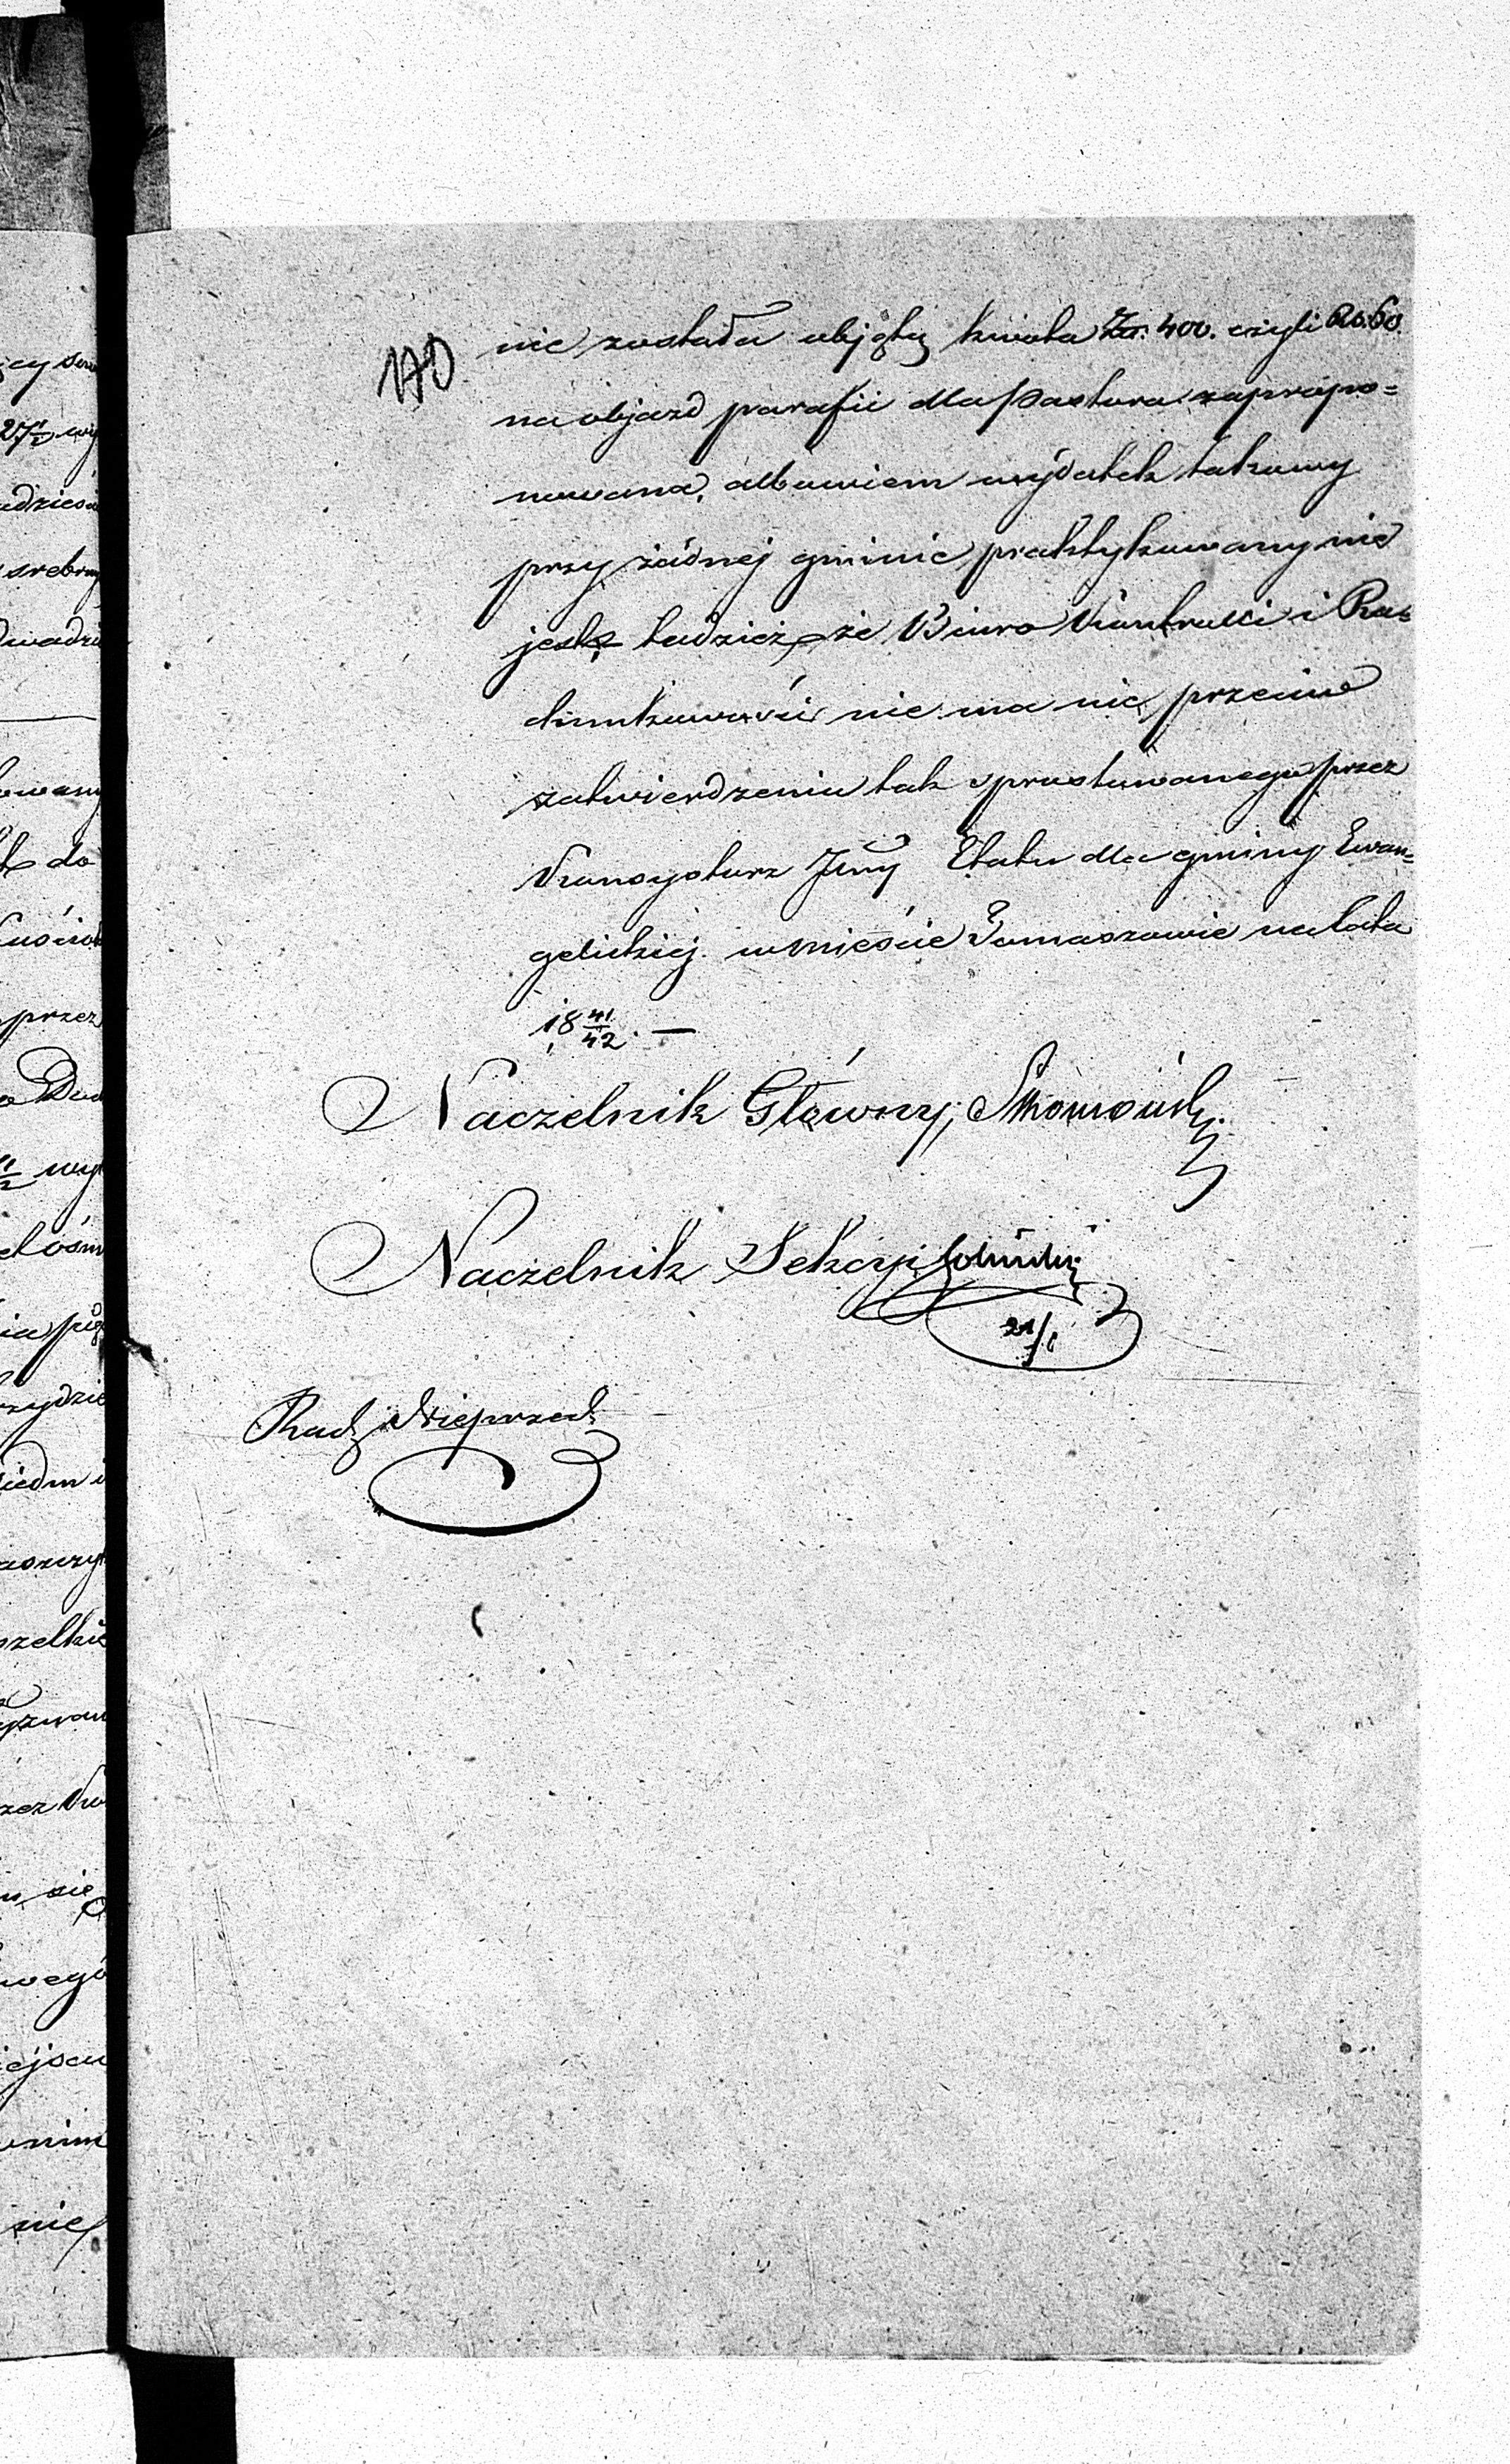 170
nie została objętą kwota Zło. 400. czyli Rs. 60.
na objazd parafii dla Pastora zapropo=
nowana, albowiem wydatek takowy
przy żadnej gminie praktykowany nie
jest, tudzież że Biuro Kontrolli i Ra=
chunkowości nie ma nic przeciw
zatwierdzeniu tak sprostowanego przez
Konsystorz Jlny Etatu dla gminy Ewan=
gelickiej w mieście Tomaszowie na lata
18 41/42. —
Naczelnik Główny,
Naczelnik Sekcyi
21/
Rad. Nieprzed.
ący
27 1/2
srebrny
do
przez
ośm
pię
siedm i
się
wego
nie